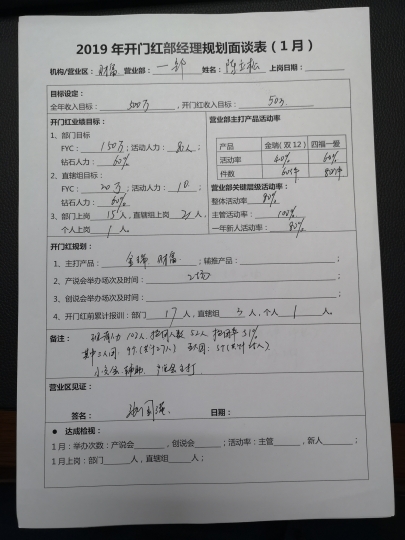 2019 年开门红部经理规划面谈表（1 月）
机构/营业区：财富 营业部：一部 姓名： 上岗日期：
目标设定：
全年收入目标：500万，开门红收入目标：50万
开门红业绩目标：
1、部门目标
FYC：150万；活动人力：80人；
钻石人力：60%
2、直辖组目标：
FYC：20万；活动人力：10；
钻石人力：60%
3、部门上岗15人，直辖组上岗2人，
个人上岗1人。
营业部主打产品活动率
产品 金瑞（双 12） 四福一爱
活动率 40% 60%
件数 60件 80件
营业部关键层级活动率：
整体活动率90%
主管活动率：100%
一年新人活动率：90%
开门红规划：
1、主打产品：金瑞 财富；辅推产品：；
2、产说会举办场次及时间：2场；
3、创说会举办场次及时间：；
4、开门红前累计报训：部门17人，直辖组3人，个人1人。
备注：
人力 102人 人数 52人 51%
小交会 辅助
营业区见证：
签名： 日期：
● 达成检视：
1 月：举办次数：产说会，创说会；活动率：主管，新人；
1 月上岗：部门人，直辖组人；